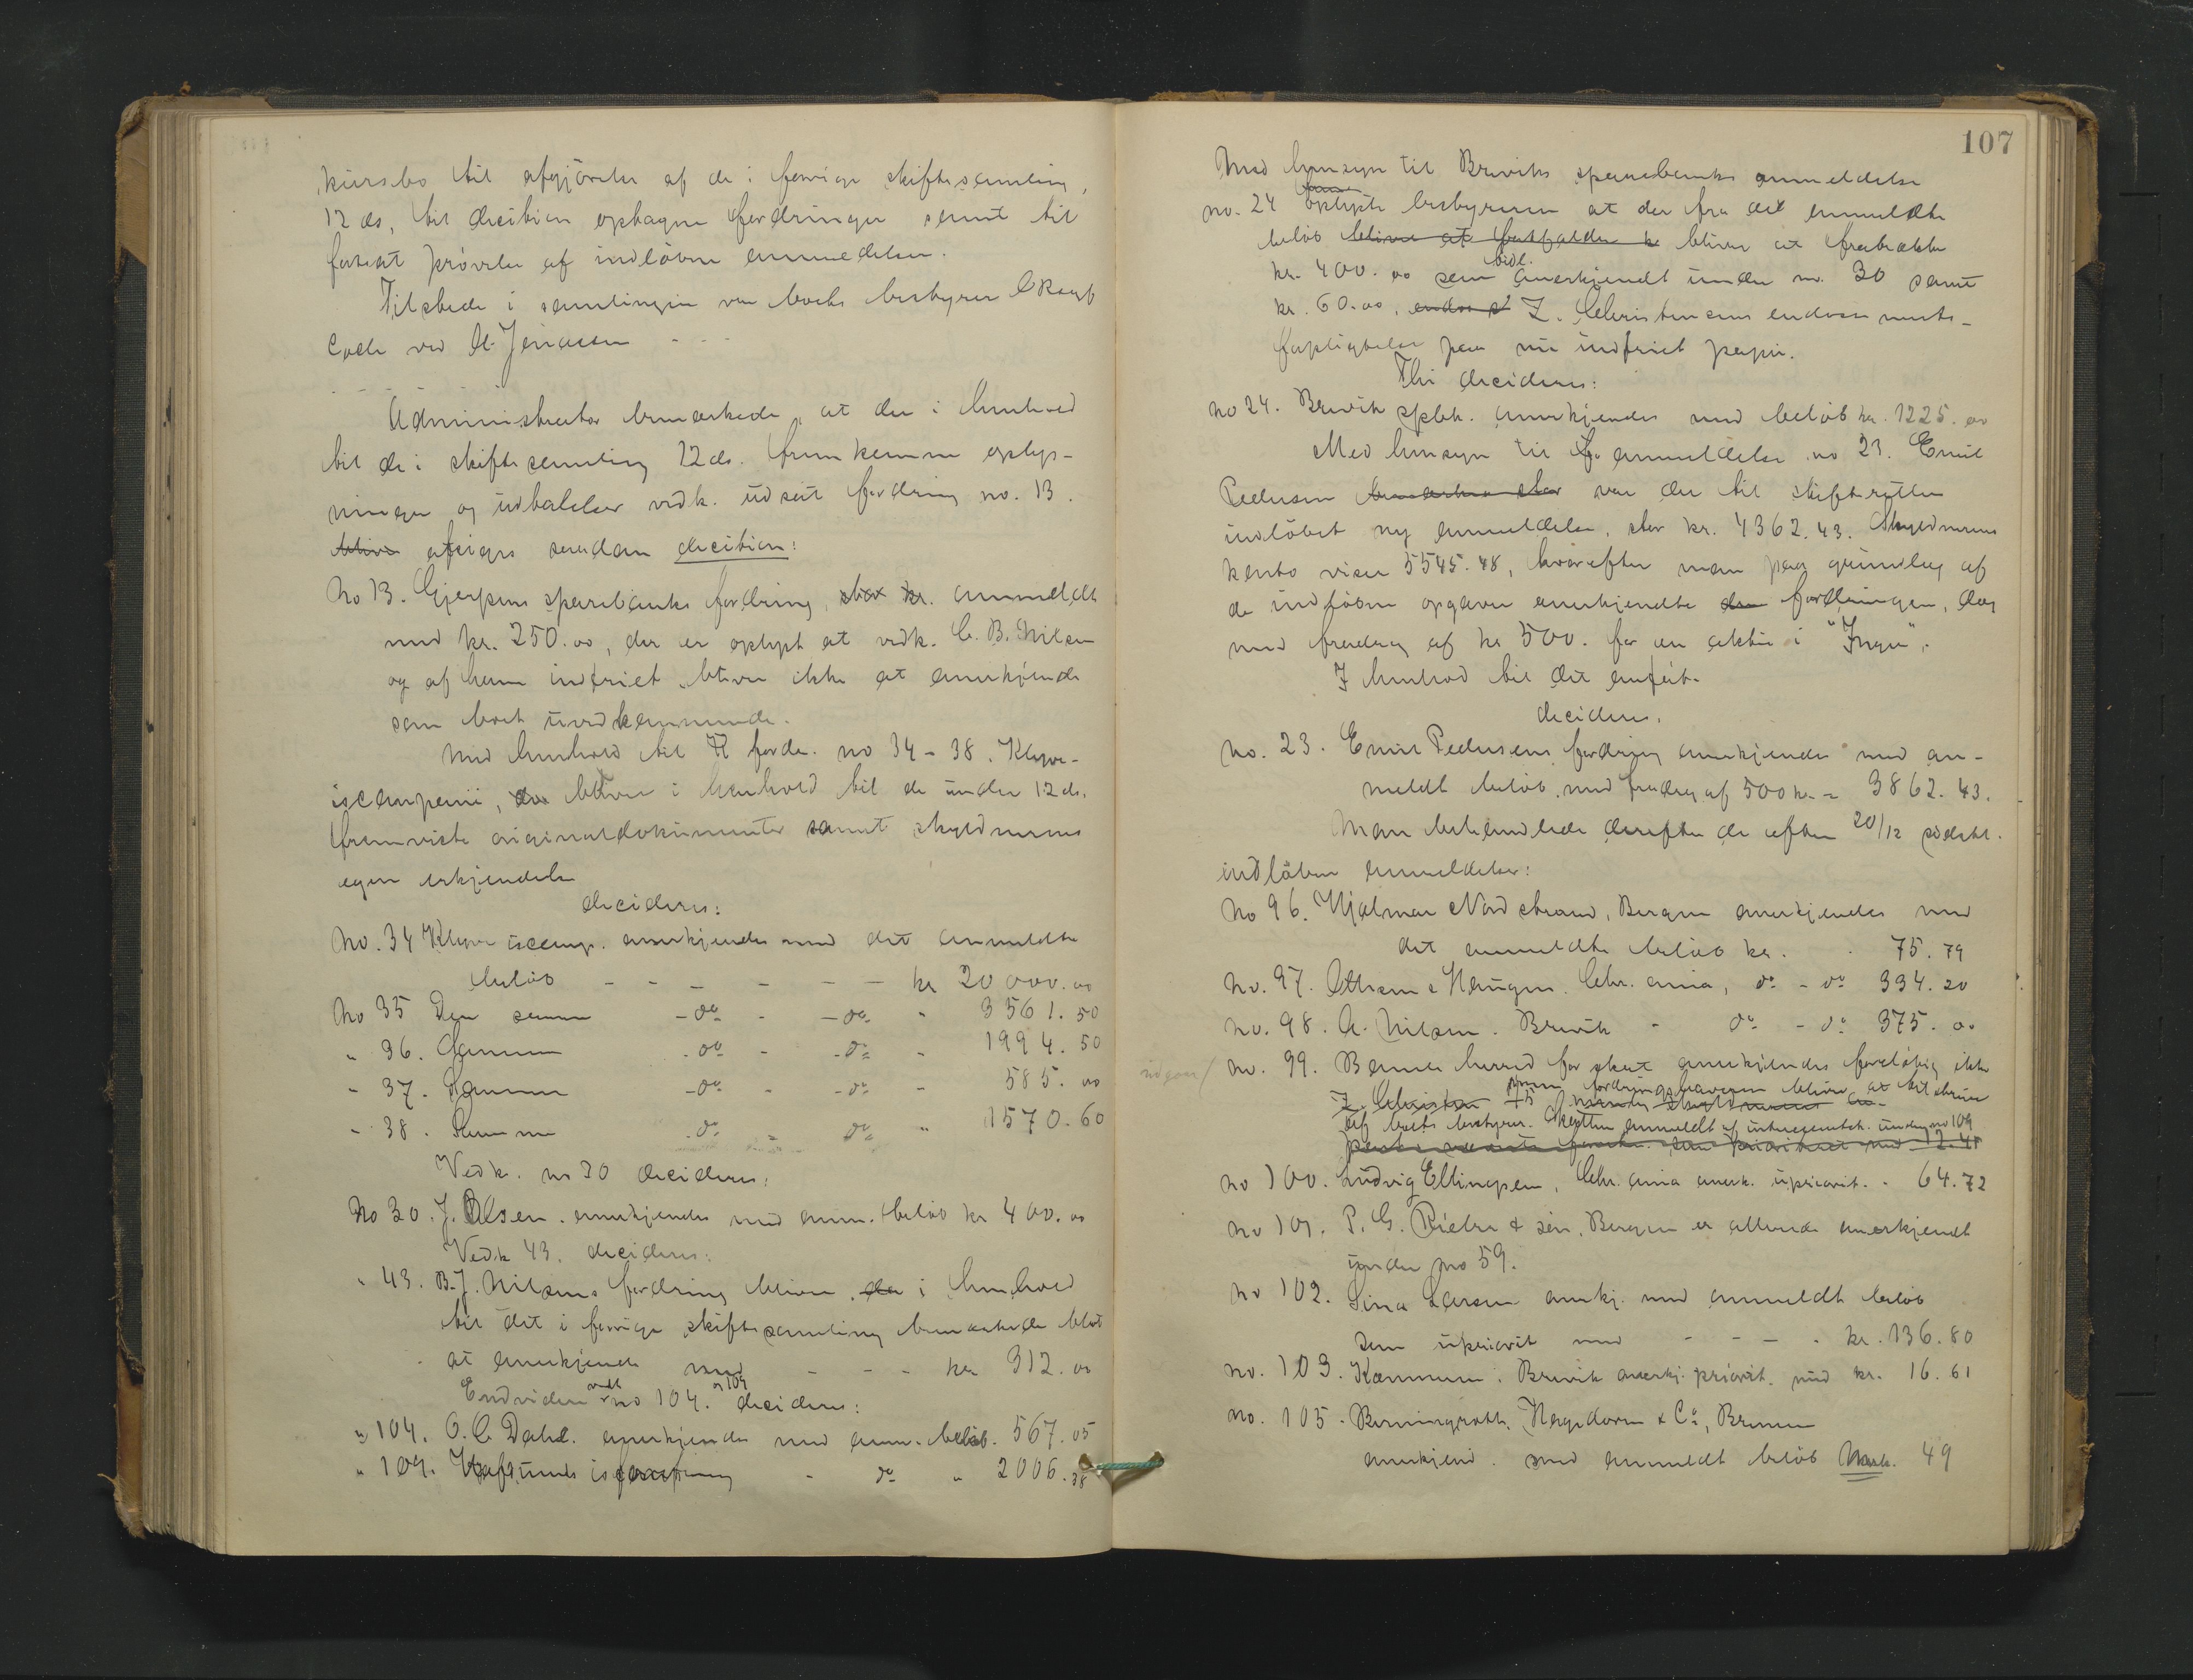 kursbo til afgjörelse af de i forrige skiftesamling,
12 ds, til decition optagne fordringer samt til
fortsat prövelse af indløbne anmeldelser.
Tilstede i samlingen var boets bestyrer
ved Jenssen - - -
Administrator bemærkede, at der i henhold
til de i skiftesamling 12 ds. fremkomne oplys-
ninger og udtalelser vedk. udsat fordring no. 13.
blive afsiges saadan decition:
No 13. Gjerpens sparebanks fordring, stor kr. anmeldt
med kr. 250.00, der er oplyst at vedk. C. B. Nilsen
og af ham indfriet, bliver ikke at anerkjende
som boet uvedkommende.
Med henhold til fordr. no 34-38. Klyve-
iscompani, bliver i henhold til de under 12 ds.
fremviste originaldokumenter samt skyldnerens
egen erkjendelse
decideres:
No. 34 Klyve iscomp. anerkjendes med det anmeldte
beløb - - - - - - kr 20 000.00
No 35 Den samme - do - - do - " 3561.50
" 36. Samme - do - - do - 1994.50
" 37. Samme - do - - do - 585.00
" 38. Samme do - do " 1570.60
Vedk. no 30 decideres:
No 30. J. Olsen. anerkjendes med anm. beløb kr 400.00
Vedk 43. decideres:
" 43. B. J. Nilsens fordring bliver, der i henhold
til det i forrige skiftesamling bemærkede blot
at anerkjende med - - - kr 312.00
Endvidere vedk no 104. o 109 decideres:
" 104. O. C. Dahl. anerkjendes med anm. beløb. 567.05
" 109. - do " 2006.38
107
Med hensyn til Breviks sparebanks anmeldelse
no. 24 oplyste bestyreren at der fra det anmeldte
beløb bliver at fratrække
kr. 400.00 som tidl. anerkjendt under no. 30 samt
kr. 60.00, Z. Christensens endossements-
forpligtelse paa nu indfriet papir.
Thi decideres:
No 24. Brevik spbk. anerkjendes med beløb kr. 1225.00
Med hensyn til anmeldelse no 23. Emil
Pedersen var der til skifteretten
indløbet ny anmeldelse, stor kr. 4362.43. Skyldnerens
konto viser 5545.48, hvorefter man paa grundlag af
de indløbne opgaver anerkjendte den fordringen, dog
med fradrag af kr 500. for en aktie i "Inga".
I henhold til det anførte
decideres.
No. 23. Emil Pedersens fordring anerkjendes med an-
meldt beløb, med fradrag af 500 kr. = 3862.43.
Man behandlede derefter de efter 20/12 sidstl.
indløbne anmeldelser:
No 96. Hjalmar Nordstrand, Bergen anerkjendes med
det anmeldte beløb kr. . 75.79
No. 97. Haugen. Chr.ania, do - do 334.20
No. 98. A. Nilsen. Brevik - do - do 375.00
udgaar/ No. 99. Bamle herred for skat anerkjendes foreløbig ikke
men fordringshaveren bliver at tilskrive
af boets bestyrer. Skatten anmeldt af under no 109
No 100. Ludvig Ellingsen, Chr.ania anerk. upriorit. . 64.72
No 101. P. G. Rieber & sön, Bergen er allerede anerkjendt
under no 59.
No 102. Sina Larsen anerkj. med anmeldt beløb
som upriorit med - - - . kr. 136.80
No. 103. Kæmneren i Brevik anerkj. priorit. med kr. 16.61
No. 105. Hagedorn & Co, Bremen
anerkjend. med anmeldt beløb Mark. 49